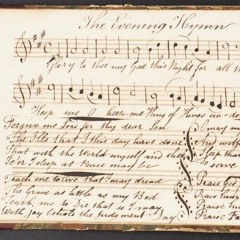 The Evening Hymn
Glory to thee my God this Night for all
Keep me O keep me King of Kings
Forgive me Lord for thy dear Son
The Ills that I this day have done
That with the World myself and thee
I e'er Sleep at Peace may be
Teach me to live that I may dread
The Grave as little as my Bed
Teach me to Die that so I may
With joy behold the judgment Day
I may
And with
Sleep that
To serve
Praise God
Praise